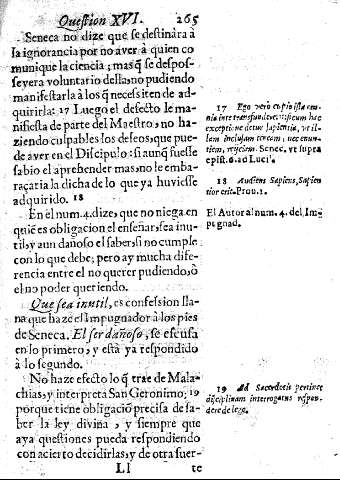 Question XVI. 265
Seneca no dize que se destinára à
la ignorancia por no aver à quien co-
munique la ciencia; mas que se despos-
seyera voluntario della, no pudiendo
manifestarla à los q̃ necessiten de ad-
quirirla: 17 Luego el defecto le ma-
nifiesta de parte del Maestro, no ha-
ziendo culpables los deseos, que pue-
de aver en el Discipulo: si aunq̃ fuesse
sabio el aprehender mas, no le emba-
raçaria la dicha de lo que ya huviesse
adquirido. 18
En el num. 4. dize, que no niega en
quiẽ es obligacion el enseñar, sea inu-
til, y aun dañoso el saber, si no cumple
con lo que debe; pero ay mucha dife-
rencia entre el no querer pudiendo, ò
el no poder queriendo.
Que sea inutil, es confession lla-
na que haze el Impugnador à los pies
de Seneca. El ser dañoso, se escusa
en lo primero, y està ya respondido
à lo segundo.
No haze efecto lo q̃ trae de Mala-
chias, y interpreta San Geronimo; 19
porque tiene obligaciõ precisa de sa-
ber la ley divina, y siempre que
aya questiones pueda respondiendo
con acierto decidirlas; y de otra suer-
Ll te
17 Ego verò cupio ista om-
nia in te transfundere: si cum hac
exceptione detur sapientia, vt il-
lam inclusam teneam, nec enun-
tiem, reijciam. Senec. vt supra
epist. 6. ad Luci.
18 Audiens Sapiens, Sapien
tior erit. Prou. 1.
El Autor al num. 4. del Im-
pugnad.
19 Ad Sacerdotis pertinet
disciplinam interrogatus respon-
dere de lege.